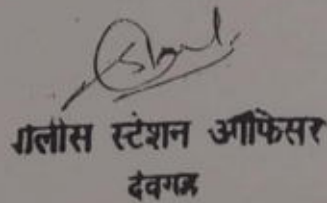 पोलीस स्टेशन ऑफिसर
देवगड